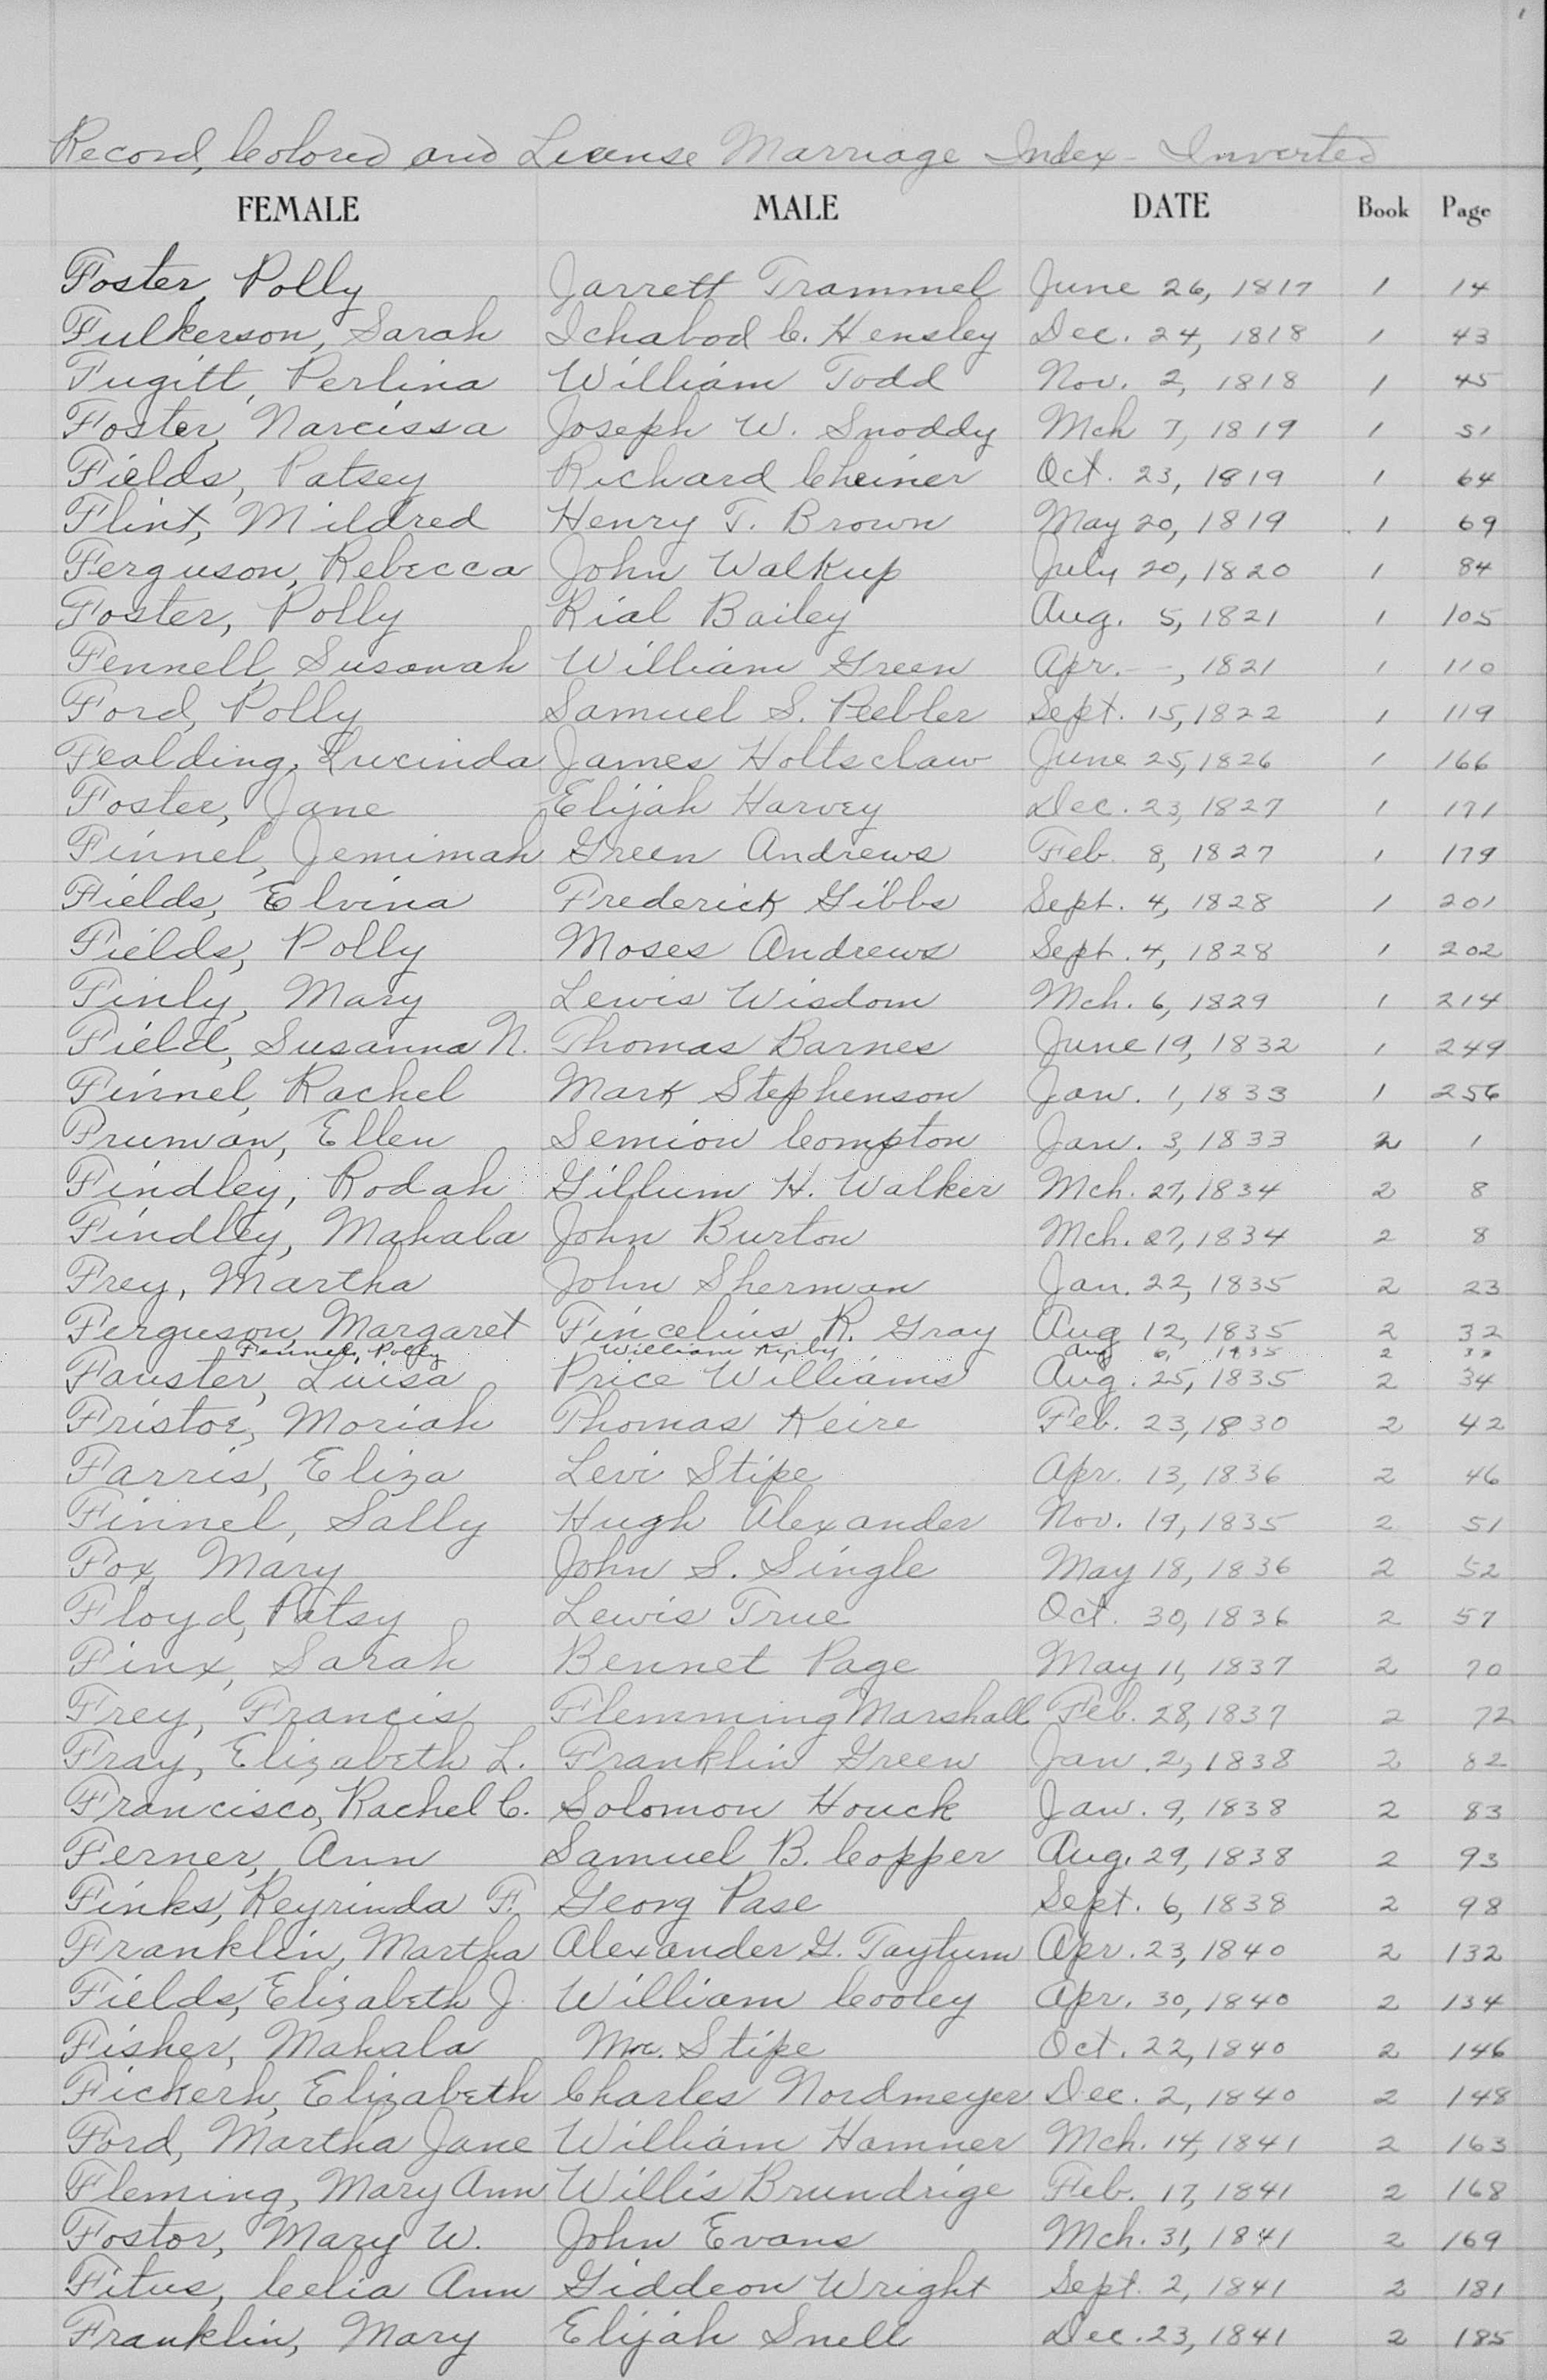 Record, Colored and License Marriage Index - Inverted
FEMALE MALE DATE Book Page
Foster, Polly Jarrett Trammel June 26, 1817 1 14
Fulkerson, Sarah Ichabod C. Hensley Dec. 24, 1818 1 43
Fugitt, Perlina William Todd Nov. 2, 1818 1 45
Foster, Narcissa Joseph W. Snoddy Mch 7, 1819 1 51
Fields, Patsey Richard Cheiner Oct. 23, 1819 1 64
Flint, Mildred Henry T. Brown May 20, 1819 1 69
Ferguson, Rebecca John Walkup July 20, 1820 1 84
Foster, Polly Rial Bailey Aug. 5, 1821 1 105
Fennell, Susanah William Green Apr. - -, 1821 1 110
Ford, Polly Samuel S. Peebler Sept. 15, 1822 1 119
Fealding, Lucinda James Holtsclaw June 25, 1826 1 166
Foster, Jane Elijah Harvey Dec. 23, 1827 1 171
Finnel, Jemimah Green Andrews Feb. 8, 1827 1 179
Fields, Elvina Frederick Gibbs Sept. 4, 1828 1 201
Fields, Polly Moses Andrews Sept. 4, 1828 1 202
Finly, Mary Lewis Wisdom Mch. 6, 1829 1 214
Field, Susanna N. Thomas Barnes June 19, 1832 1 249
Finnel, Rachel Mark Stephenson Jan. 1, 1833 1 256
Pruman, Ellen Semion Compton Jan. 3, 1833 2 1
Findley, Rodah Gillum H. Walker Mch. 27, 1834 2 8
Findley, Mahala John Burton Mch. 27, 1834 2 8
Frey, Martha John Sherman Jan. 22, 1835 2 23
Ferguson, Margaret Fincelius R. Gray Aug 12, 1835 2 32
Fennel, Polly William Kirby Aug 6, 1835 2
Fauster, Luisa Price Williams Aug. 25, 1835 2 34
Fristoe, Moriah Thomas Keire Feb. 23, 1830 2 42
Farris, Eliza Levi Stipe Apr. 13, 1836 2 46
Finnel, Sally Hugh Alexander Nov. 19, 1835 2 51
Fox, Mary John S. Single May 18, 1836 2 52
Floyd, Patsy Lewis True Oct. 30, 1836 2 57
Finx, Sarah Bennet Page May 11, 1837 2 70
Frey, Francis Flemming Marshall Feb. 28, 1837 2 72
Fray, Elizabeth L. Franklin Green Jan. 2, 1838 2 82
Francisco, Rachel C. Solomon Houck Jan. 9, 1838 2 83
Ferner, Ann Samuel B. Copper Aug. 29, 1838 2 93
Finks, Reyrinda F. Georg Pase Sept. 6, 1838 2 98
Franklin, Martha Alexander G. Taytum Apr. 23, 1840 2 132
Fields, Elizabeth J. William Cooley Apr. 30, 1840 2 134
Fisher, Mahala Mc. Stipe Oct. 22, 1840 2 146
Fickerh, Elizabeth Charles Nordmeyer Dec. 2, 1840 2 148
Ford, Martha Jane William Hamner Mch. 14, 1841 2 163
Fleming, Mary Ann Willis Brundrige Feb. 17, 1841 2 168
Fostor, Mary W. John Evans Mch. 31, 1841 2 169
Fitus, Celia Ann Giddeon Wright Sept. 2, 1841 2 181
Franklin, Mary Elijah Snell Dec. 23, 1841 2 185